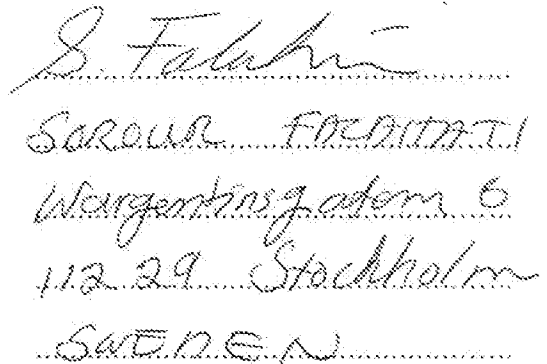 S. Falahati
SOROUR FALAHATI
Wargentinsgatan 6
112 29 Stockholm
SWEDEN